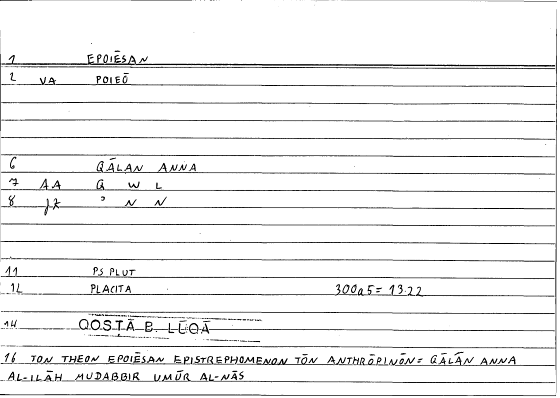 1 EPOIĒSAN
2 VA POIEŌ
6 QĀLAN ANNA
7 AA Q W L
8 ʾ N N
11 PS PLUT
12 PLACITA 300a5 = 13.22
14 QOSṬĀ B. LŪQĀ
16 TON THEON EPOIĒSAN EPISTREPHOMENON TŌN ANTHRŌPINŌN = QĀLĀN ANNA
AL-ILĀH MUDABBIR UMŪR AL-NĀS